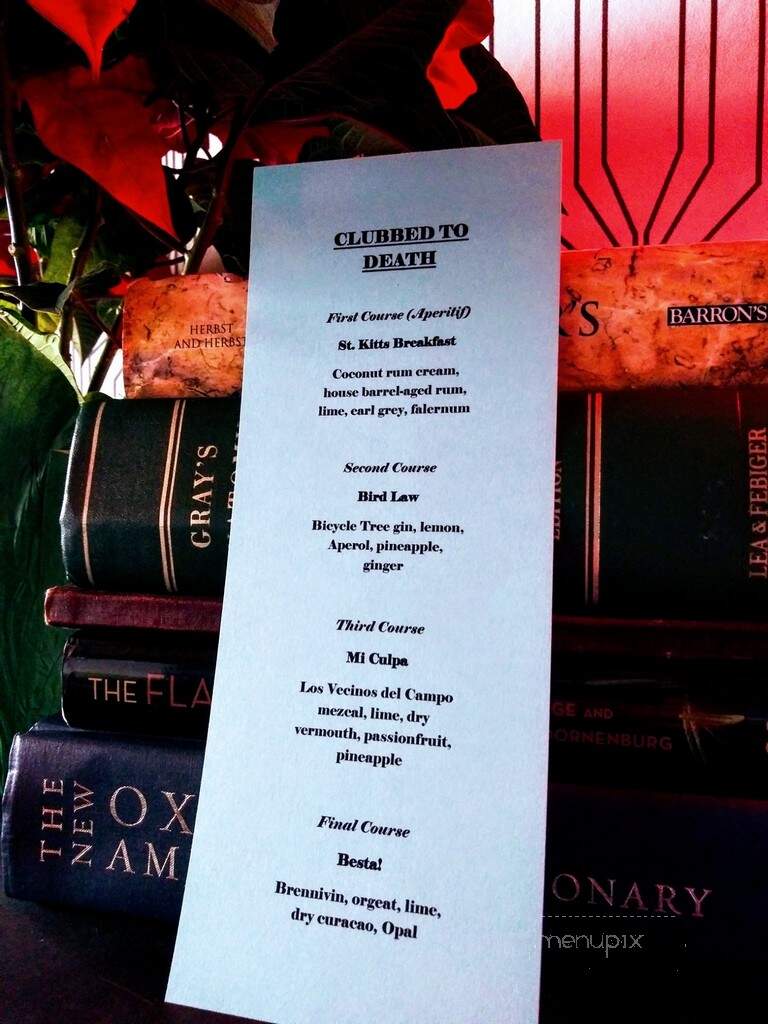 CLUBBED TO
DEATH
First Course (Aperitif)
St. Kitts Breakfast
Coconut rum cream,
house barrel-aged rum,
lime, earl grey, falernum
Second Course
Bird Law
Bicycle Tree gin, lemon,
Aperol, pineapple,
ginger
Third Course
Mi Culpa
Los Vecinos del Campo
mezcal, lime, dry
vermouth, passionfruit,
pineapple
Final Course
Besta!
Brennivin, orgeat, lime,
dry curacao, Opal
HERBST
AND HERBST
BARRON'S
GRAY'S
EDITION
LEA & FEBIGER
THE FLA
GE AND
DORNENBURG
THE NEW
OX
AM
ONARY
menupix